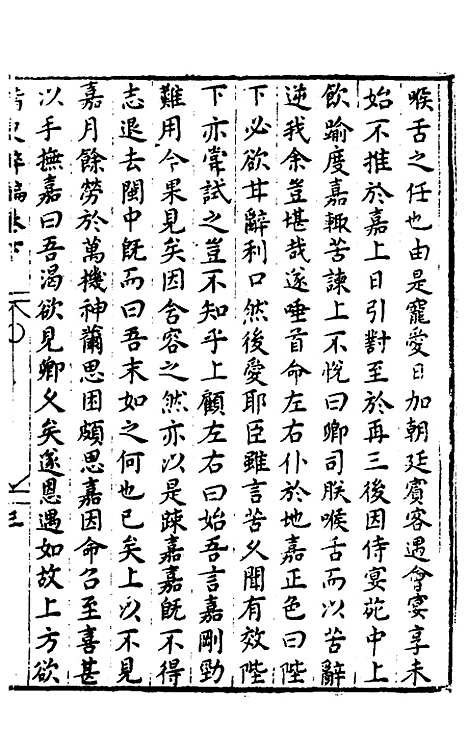 喉舌之任也由是寵愛日加朝廷賓客遇會宴享未
始不推於嘉上日引對至於再三後因侍宴苑中上
飲踰度嘉輒苦諫上不悅曰卿司朕喉舌而以苦辭
逆我余豈堪哉遂唾首命左右仆於地嘉正色曰陛
下必欲甘辭利口然後愛耶臣雖言苦久聞有效陛
下亦嘗試之豈不知乎上顧左右曰始吾言嘉剛勁
難用今果見矣因含容之然亦以是疎嘉嘉旣不得
志退去閩中旣而曰吾末如之何也已矣上以不見
嘉月餘勞於萬機神薾思困頗思嘉因命召至喜甚
以手撫嘉曰吾渴欲見卿久矣遂恩遇如故上方欲